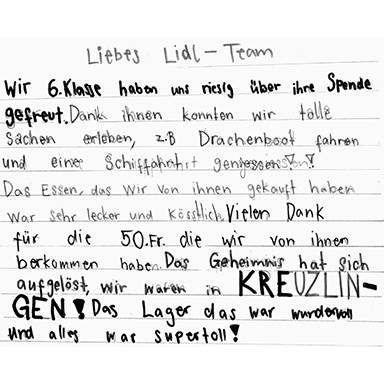 Liebes Lidl-Team
Wir 6.Klasse haben uns riesig über ihre Spende
gefreut. Dank ihnen konnten wir tolle
sachen erleben, z.B Drachenboot fahren
und eine Schiffahrt geniessen!!
Das Essen, das wir von ihnen gekauft haben
war sehr lecker und kösstlich. Vielen Dank
für die 50.Fr. die wir von ihnen
berkommen haben. Das Geheimnis hat sich
aufgelöst, wir waren in KREUZLIN-
GEN! Das Lager das war wundervoll
und alles war supertoll!